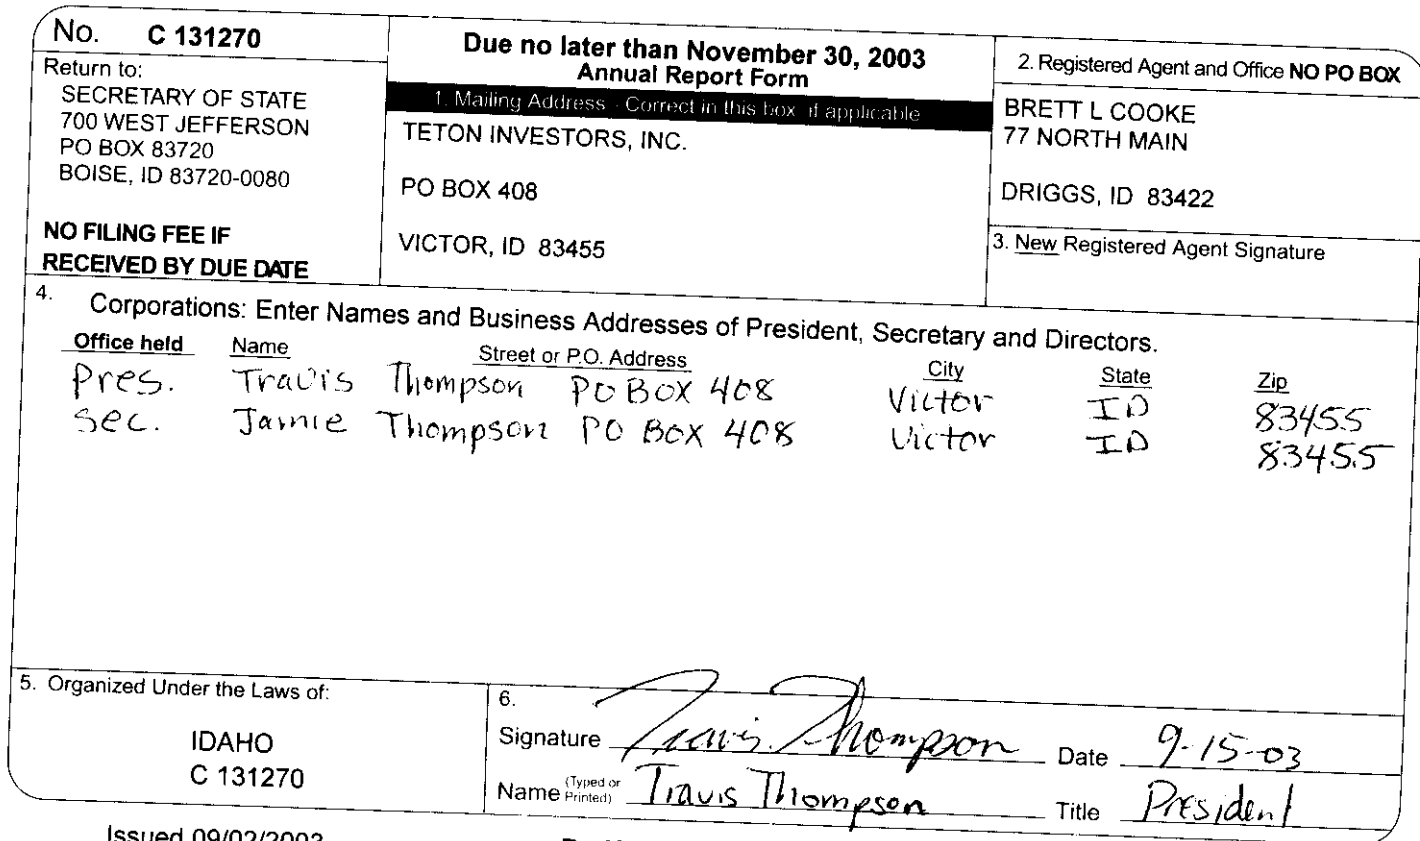 No. C 131270
Return to:
SECRETARY OF STATE
700 WEST JEFFERSON
PO BOX 83720
BOISE, ID 83720-0080
NO FILING FEE IF
RECEIVED BY DUE DATE
Due no later than November 30, 2003
Annual Report Form
1. Mailing Address - Correct in this box if applicable
TETON INVESTORS, INC.
PO BOX 408
VICTOR, ID 83455
2. Registered Agent and Office NO PO BOX
BRETT L COOKE
77 NORTH MAIN
DRIGGS, ID 83422
3. New Registered Agent Signature
4. Corporations: Enter Names and Business Addresses of President, Secretary and Directors.
Office held Name Street or P.O. Address City State Zip
Pres. Travis Thompson PO BOX 408 Victor ID 83455
Sec. Jamie Thompson PO BOX 408 Victor ID 83455
5. Organized Under the Laws of:
IDAHO
C 131270
6.
Signature Travis Thompson Date 9-15-03
Name (Typed or Printed) Travis Thompson Title President
Issued 09/02/2003